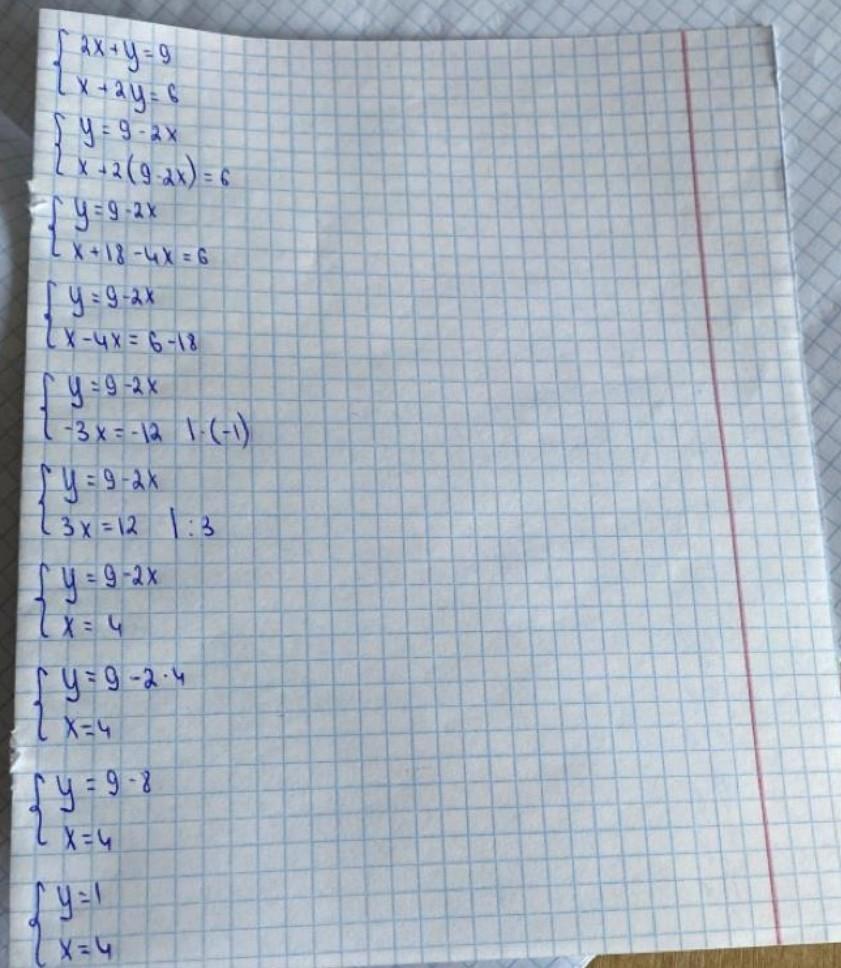 2x+y=9
x+2y=6
y=9-2x
x+2(9-2x)=6
y=9-2x
x+18-4x=6
y=9-2x
x-4x=6-18
y=9-2x
-3x=-12 |·(-1)
y=9-2x
3x=12 |:3
y=9-2x
x=4
y=9-2·4
x=4
y=9-8
x=4
y=1
x=4